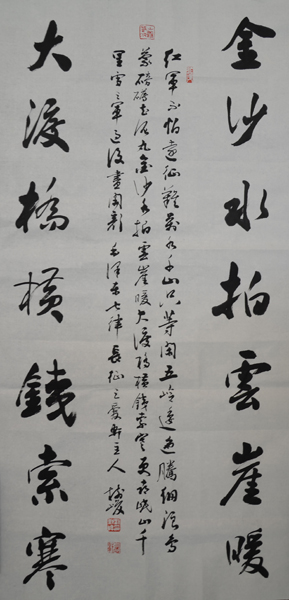 金沙水拍雲崖暖
紅軍不怕遠征難萬水千山只等閑五嶺逶迤騰細浪烏
蒙磅礴走泥丸金沙水拍雲崖暖大渡橋橫鐵索寒更喜岷山千
里雪三軍過後盡開顏毛澤東七律長征愛軒主人
大渡橋橫鐵索寒